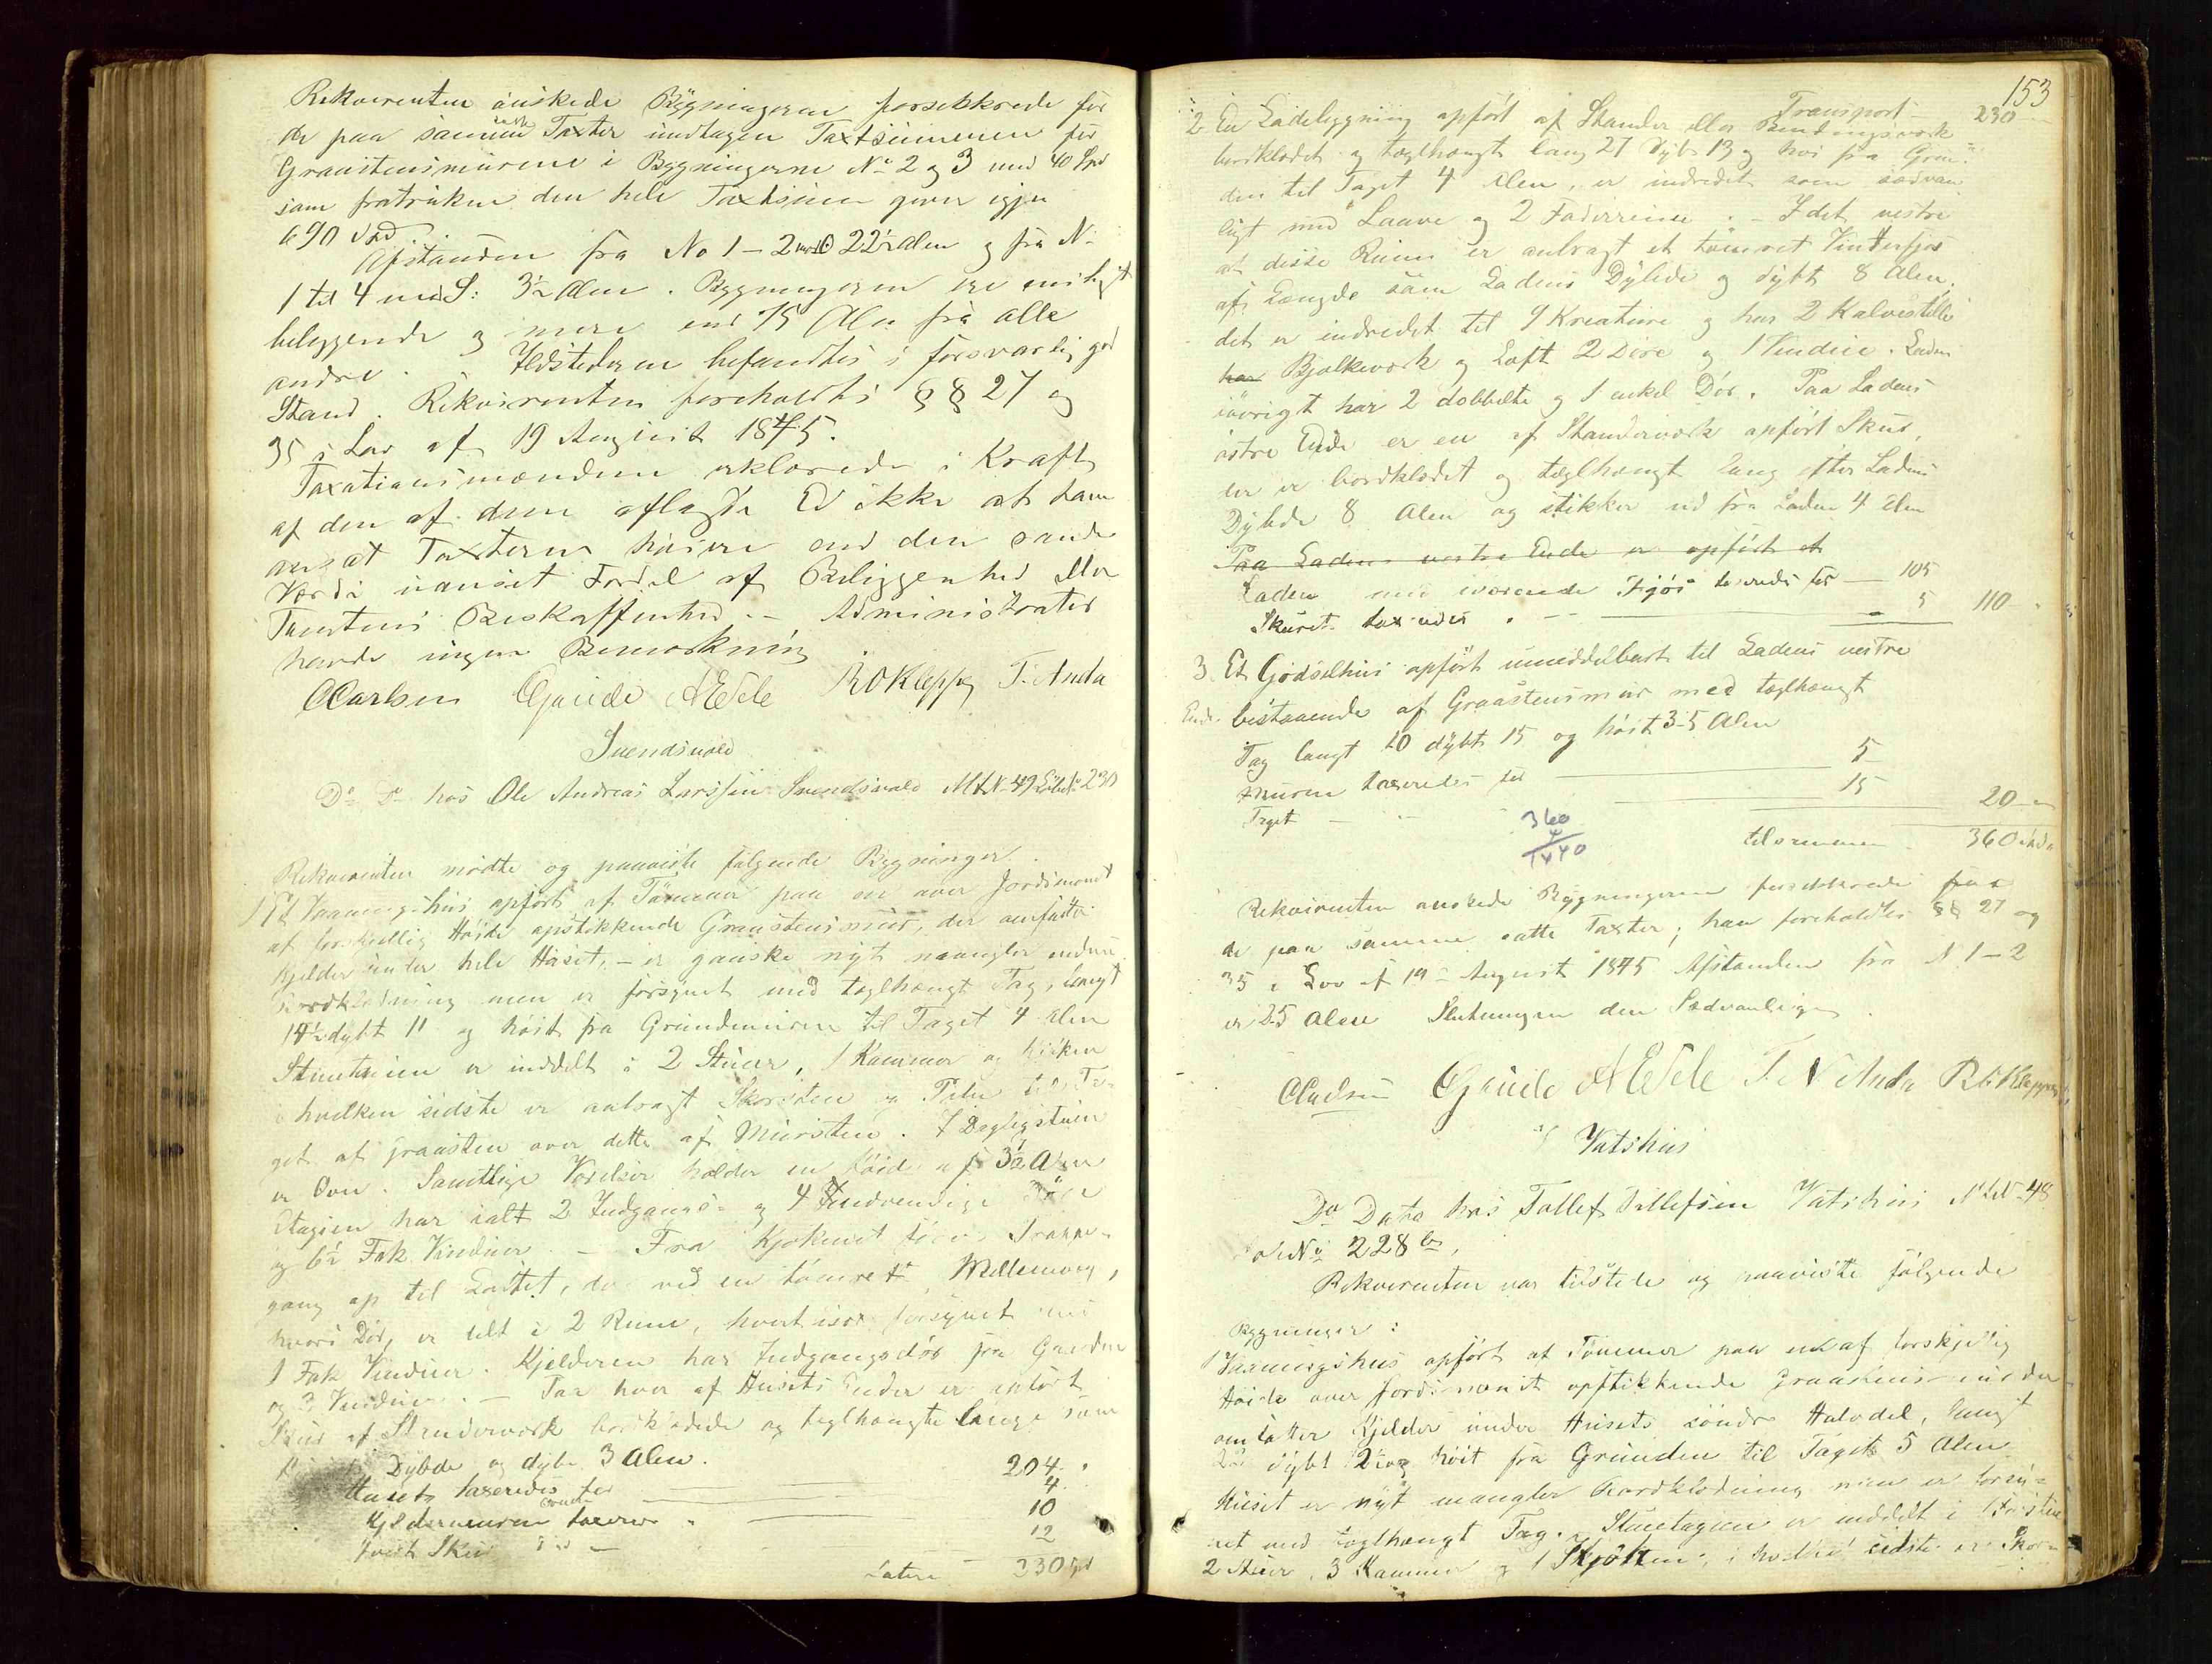 Rekvirenten ønskede Bygningerne forsikkrede for
de paa samme satte Taxter undtagen Taxtsummen for
Graastensmurene i Bygningerne No 2 og 3 med 40 Spd
som fratrukken den hele Taxtsum giver igjen
690 Spd.
Afstanden fra No 1-2 22½ Alen og fra No
1 til 4 mod S: 3½ Alen. Bygningerne ere
beliggende og mere end 75 Alen fra alle
andre. Ildstederne befandtes i forsvarlig god
Stand. Rekvirenten foreholdtes §§ 27 og
35 i Lov af 19 August 1845.
Taxationsmændene erklærede i Kraft
af den af dem aflagte Ed ikke at have
ansat Taxterne høiere end den sande
Værdi uanset Fordel af Beliggenhed eller
Tomtens Beskaffenhed. - Administrator
havde ingen Bemærkning
CCarlsen Gjøide AEdle ROKleppe T. Anda
Svendsvold
Do Do hos Ole Andreas Larssen Svendsvold MtNo 49 LøbeNo 230
Rekvirenten mødte og paaviste følgende Bygninger.
1 Et Vaaningshus opført af Tømmer paa en over Jordsmonet
af forskjellig Høide opstikkende Graastensmur, der omfatter
Kjelder under hele Huset, - er ganske nyt mangler endnu
Bordklædning men er forsynet med teglhængt Tag, langt
14½ dybt 11 og høit fra Grundmuren til Taget 4 Alen
Stueetagen er inddelt i 2 Stuer, 1 Kammer og Kjøken
i hvilken sidste er anbragt Skorsten og Pibe til Ta-
get af Graasten over dette af Mursten. I Dagligstuen
er Ovn. Samtlige Værelser holder en Høide af 3½ Alen
Etagen har ialt 2 Indgangs- og 4 Indvendige Døre
og 6½ Fak Vinduer. - Fra Kjøkenet fører Trappe-
gang op til Loftet, der ved en tømret Mellemvæg,
hvori Dør, er delt i 2 Rum, hvert især forsynet med
1 Fak Vinduer. Kjelderen har Indgangsdør fra Gaarden
og 3 Vinduer. - Paa hver af Husets Ender er opført
Skur af Stenderværk bordklædede og teglhængte lange som
Dybde og dybe 3 Alen.
Huset taxeredes for 204.
4
Kjeldermuren taxeres 10
hvert Skur 12
Latere 230 Spd
153
Transport 230
2. En Ladebygning opført af Stender eller Bindingsværk
bordklædet og teglhængt lang 27 dyb 13 og høi fra Grun-
den til Taget 4 Alen, er indredet som sædvan
ligt med Laave og 2 Foderrum. - I det vestre
af disse Rum er anbragt et tømret Vinterfjøs
af Længde som Ladens Dybde og dybt 8 Alen,
det er indredet til 9 Kreature og har 2 Kalvestille
har Bjelkeværk og Loft 2 Døre og 1 Vindue. Laden
iøvrigt har 2 dobbelte og 1 enkel Dør. Paa Ladens
østre Ende er en af Stenderværk opført Skur,
der er bordklædet og teglhængt lang efter Ladens
Dybde 8 Alen og stikker ud fra Laden 4 Alen
Paa Ladens vestre Ende er opført et
Laden med iværende Fjøs taxeredes for - 105
Skuret taxeredes - 5 110
3. Et Gjødselhus opført umiddelbart til Ladens vestre
Ende bestaaende af Graastensmur med teglhængt
Tag langt 10 dybt 15 og høit 3-5 Alen
Muren taxeredes for 5
Taget 15
20
360
4
1440
tilsammen 360
Rekvirenten ønskede Bygningerne forsikkrede for
de paa samme satte Taxter; han foreholdtes §§ 27 og
35 i Lov af 19 August 1845 Afstanden fra No 1-2
er 25 Alen Slutningen den Sædvanlige.
CCarlsen Gjøide AEdle T. N Anda ROKleppe
Vatshus
Do Dato hos Tollef Tollefsen Vatshus MtNo 48
LøbeNo 228 b,
Rekvirenten var tilstede og paaviste følgende
Bygninger:
1 Vaaningshus opført af Tømmer paa en af forskjellig
Høide over Jordsmonet opstikkende Graastensmur der
omfatter Kjelder under Husets søndre Halvdel, langt
dybt 12 og høit fra Grunden til Taget 5 Alen
Huset er nyt mangler Bordklædning men er forsy-
net med teglhængt Tag. - Stueetagen er inddelt i 1 Forstue
2 Stuer, 3 Kammer og 1 Kjøken, i hvilket sidste er Skor-